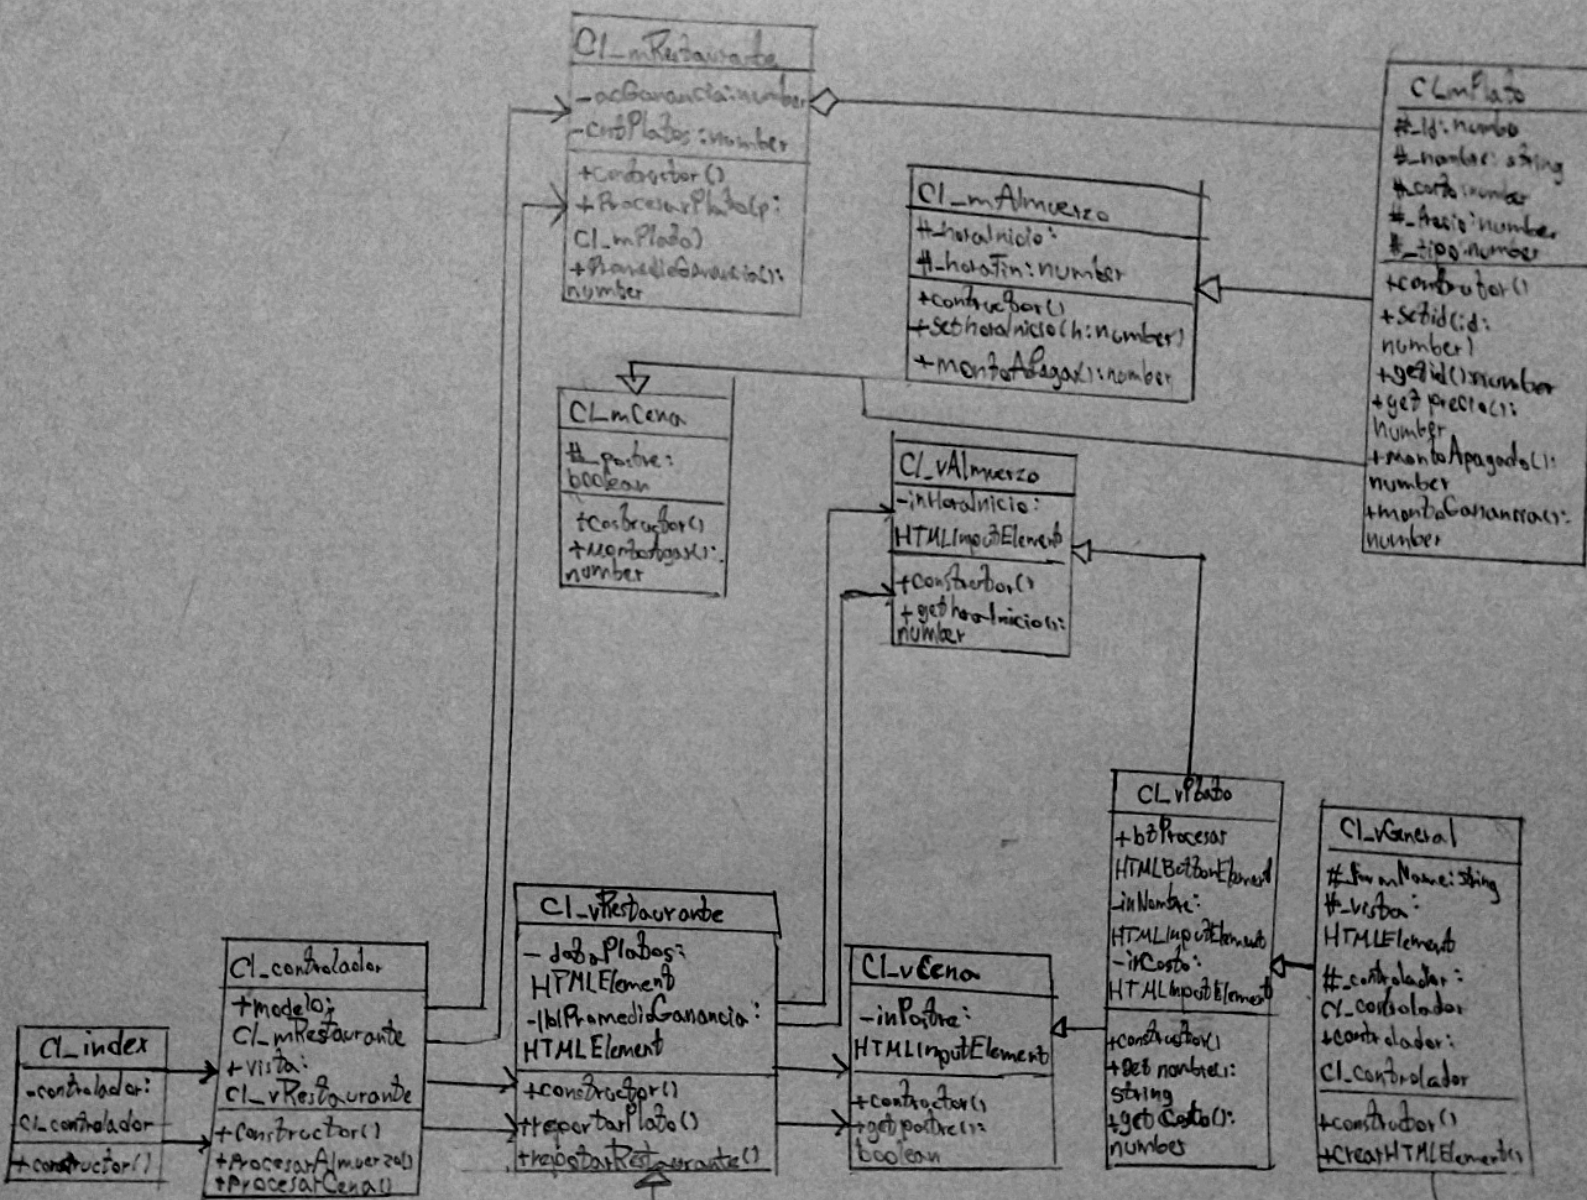 Cl_mRestaurante
-acGanancia:number
-cntPlatos:number
+Contructor()
+ProcesarPlato(p:
Cl_mPlato)
+PromedioGanancia():
number
CLmPlato
#_Id:numbe
#_nombre:string
#_costo:number
#_Precio:number
#_tipo:number
+contrutor()
+setid(id:
number)
+getid():number
+getprecio():
number
+montoApagado():
number
+montoGanancia():
number
Cl_mAlmuerzo
#_horaInicio:
#_horaFin:number
+contructor()
+sethoraInicio(h:number)
+montoAPagar():number
CL_mCena
#_postre:
boolean
+Costructor()
+MontoApgar():
number
Cl_vAlmuerzo
-inHoraInicio:
HTMLInputElement
+constructor()
+gethoraInicio():
number
CL_vPlato
+btProcesar
HTMLButtonElement
-inNombre:
HTMLInputElement
-inCosto:
HTMLInputElement
+constructor()
+get nombre():
string
+getCosto():
number
Cl_vGeneral
#_formName:string
#_vista:
HTMLElement
#_controlador:
Cl_controlador
+controlador:
Cl_controlador
+constructor()
+crearHTMLElement()
Cl_vRestaurante
-dataPlatos:
HTMLElement
-lblPromedioGanancia:
HTMLElement
+constructor()
+reportarPlato()
+reportarRestaurante()
Cl_vCena
-inPostre:
HTMLInputElement
+contructor()
+getpostre():
boolean
Cl_controlador
+modelo:
Cl_mRestaurante
+vista:
Cl_vRestaurante
+Constructor()
+ProcesarAlmuerzo()
+ProcesarCena()
Cl_index
-controlador:
Cl_controlador
+constructor()